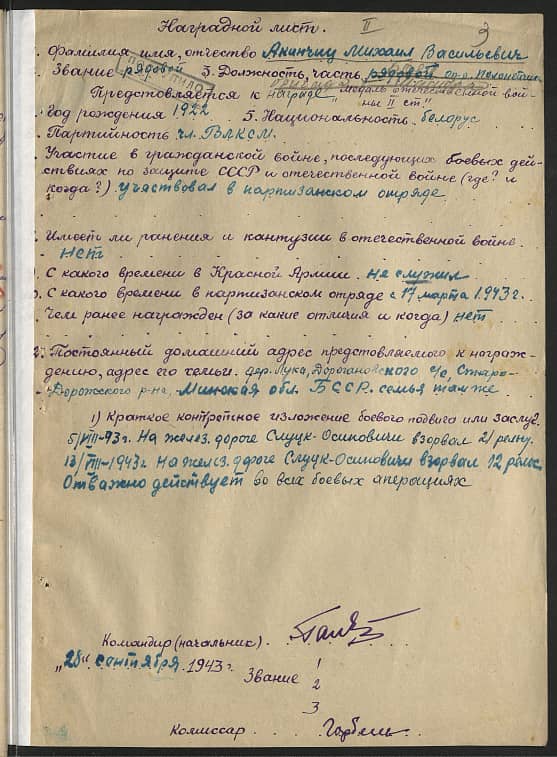 Наградной лист. II 3
. Фамилия имя, отчество Ананчиц Михаил Васильевич
. Звание рядовой 3. Должность, часть рядовой
Предстовляется к награде „медаль отечественной вой-
ны II ст."
Год рождения 1922 5. Национальность белорус
. Партийность чл. ВЛКСМ.
. Участие в гражданской войне, последующих боевых дей-
ствиях по защите СССР и отечественной войне (где? и
когда?) Участвовал в партизанском отряде
. Имеет ли ранения и кантузии в отечественной войне.
Нет
) С какого времени в Красной Армии. Не служил
). С какого времени в партизанском отряде с 17 марта 1943 г.
Чем ранее награжден (за какие отличия и когда) нет
2. Постоянный домашний адрес предстовляемого к награж-
дению, адрес его семьи. дер. Лука, Дороганов­ского с/с, Старо-
Дорожского р-на, Минская обл. БССР. семья там же
1) Краткое контретное изложение боевого подвига или заслуг.
5/VIII-93г. На желез. дороге Слуцк-Осиповичи взорвал 21 рельу.
13/VIII-1943г. На желез. дороге Слуцк-Осиповичи взорвал 12 рельс.
Отважно действует во всех боевых операциях
Командир (начальник).
„28" сентября 1943 г.
Звание 1
2
3
Комиссар Горбель